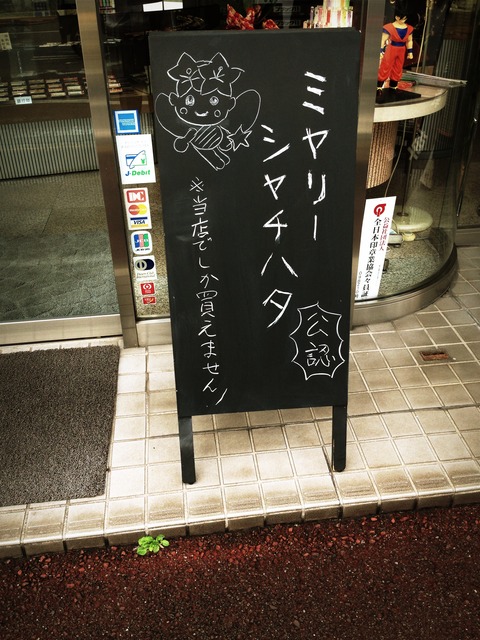 ミヤリー
シヤチハタ
公認
※当店でしか買えません!
J-Debit
DC
MasterCard
VISA
JCB
公益社団法人
全日本印章業協会々員証